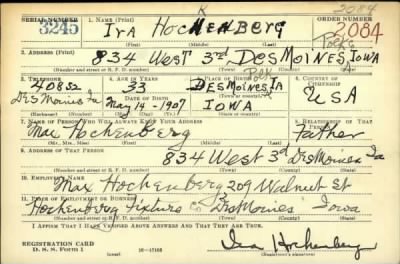 2084
SERIAL NUMBER 1. NAME (Print) ORDER NUMBER
3245 Ira Hockenberg 2084
(First) (Middle) (Last)
2. ADDRESS (Print) POLK
834 West 3rd Des Moines, Iowa
(Number and street or R. F. D. number) (Town) (County) (State)
3. TELEPHONE 4. AGE IN YEARS 5. PLACE OF BIRTH 6. COUNTRY OF CITIZENSHIP
40852 33 Des Moines, Ia
POLK
Des Moines Ia DATE OF BIRTH
May 14-1907 Iowa USA
7. NAME OF PERSON WHO WILL ALWAYS KNOW YOUR ADDRESS 8. RELATIONSHIP OF THAT PERSON
Max Hockenberg Father
(Mr., Mrs., Miss) (First) (Middle) (Last)
9. ADDRESS OF THAT PERSON
834 West 3rd Des Moines Ia
(Number and street or R. F. D. number) (Town) (County) (State)
10. EMPLOYER'S NAME
Max Hockenberg 209 Walnut St
11. PLACE OF EMPLOYMENT OR BUSINESS
Hockenberg Fixture Co Des Moines Iowa
(Number and street or R. F. D. number) (Town) (County) (State)
I AFFIRM THAT I HAVE VERIFIED ABOVE ANSWERS AND THAT THEY ARE TRUE.
REGISTRATION CARD
D. S. S. Form 1 Ira Hockenberg
(Registrant's signature)